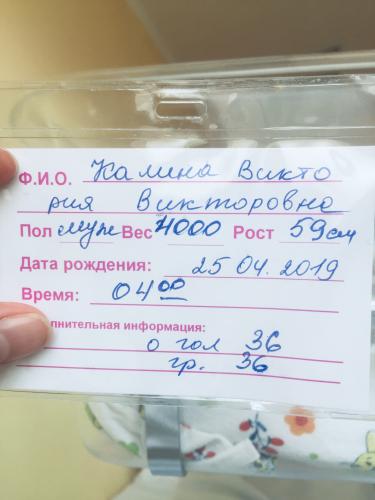 Ф.И.О. Калина Викто
рия Викторовна
Пол муж Вес 4000 Рост 59 см
Дата рождения: 25 04. 2019
Время: 04 00
лнительная информация:
о гол 36
гр. 36